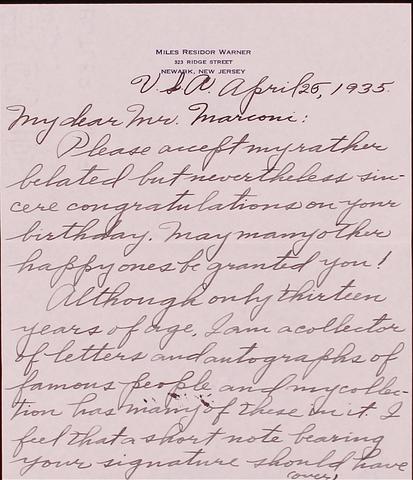 MILES RESIDOR WARNER
323 RIDGE STREET
NEWARK, NEW JERSEY
U.S.A. April 25, 1935.
My dear Mr. Marconi:
Please accept my rather
belated but nevertheless sin-
cere congratulations on your
birthday. May many other
happy ones be granted you!
Although only thirteen
years of age, I am a collector
of letters and autographs of
famous people and my collec-
tion has many of these in it. I
feel that a short note bearing
your signature should have
(over)